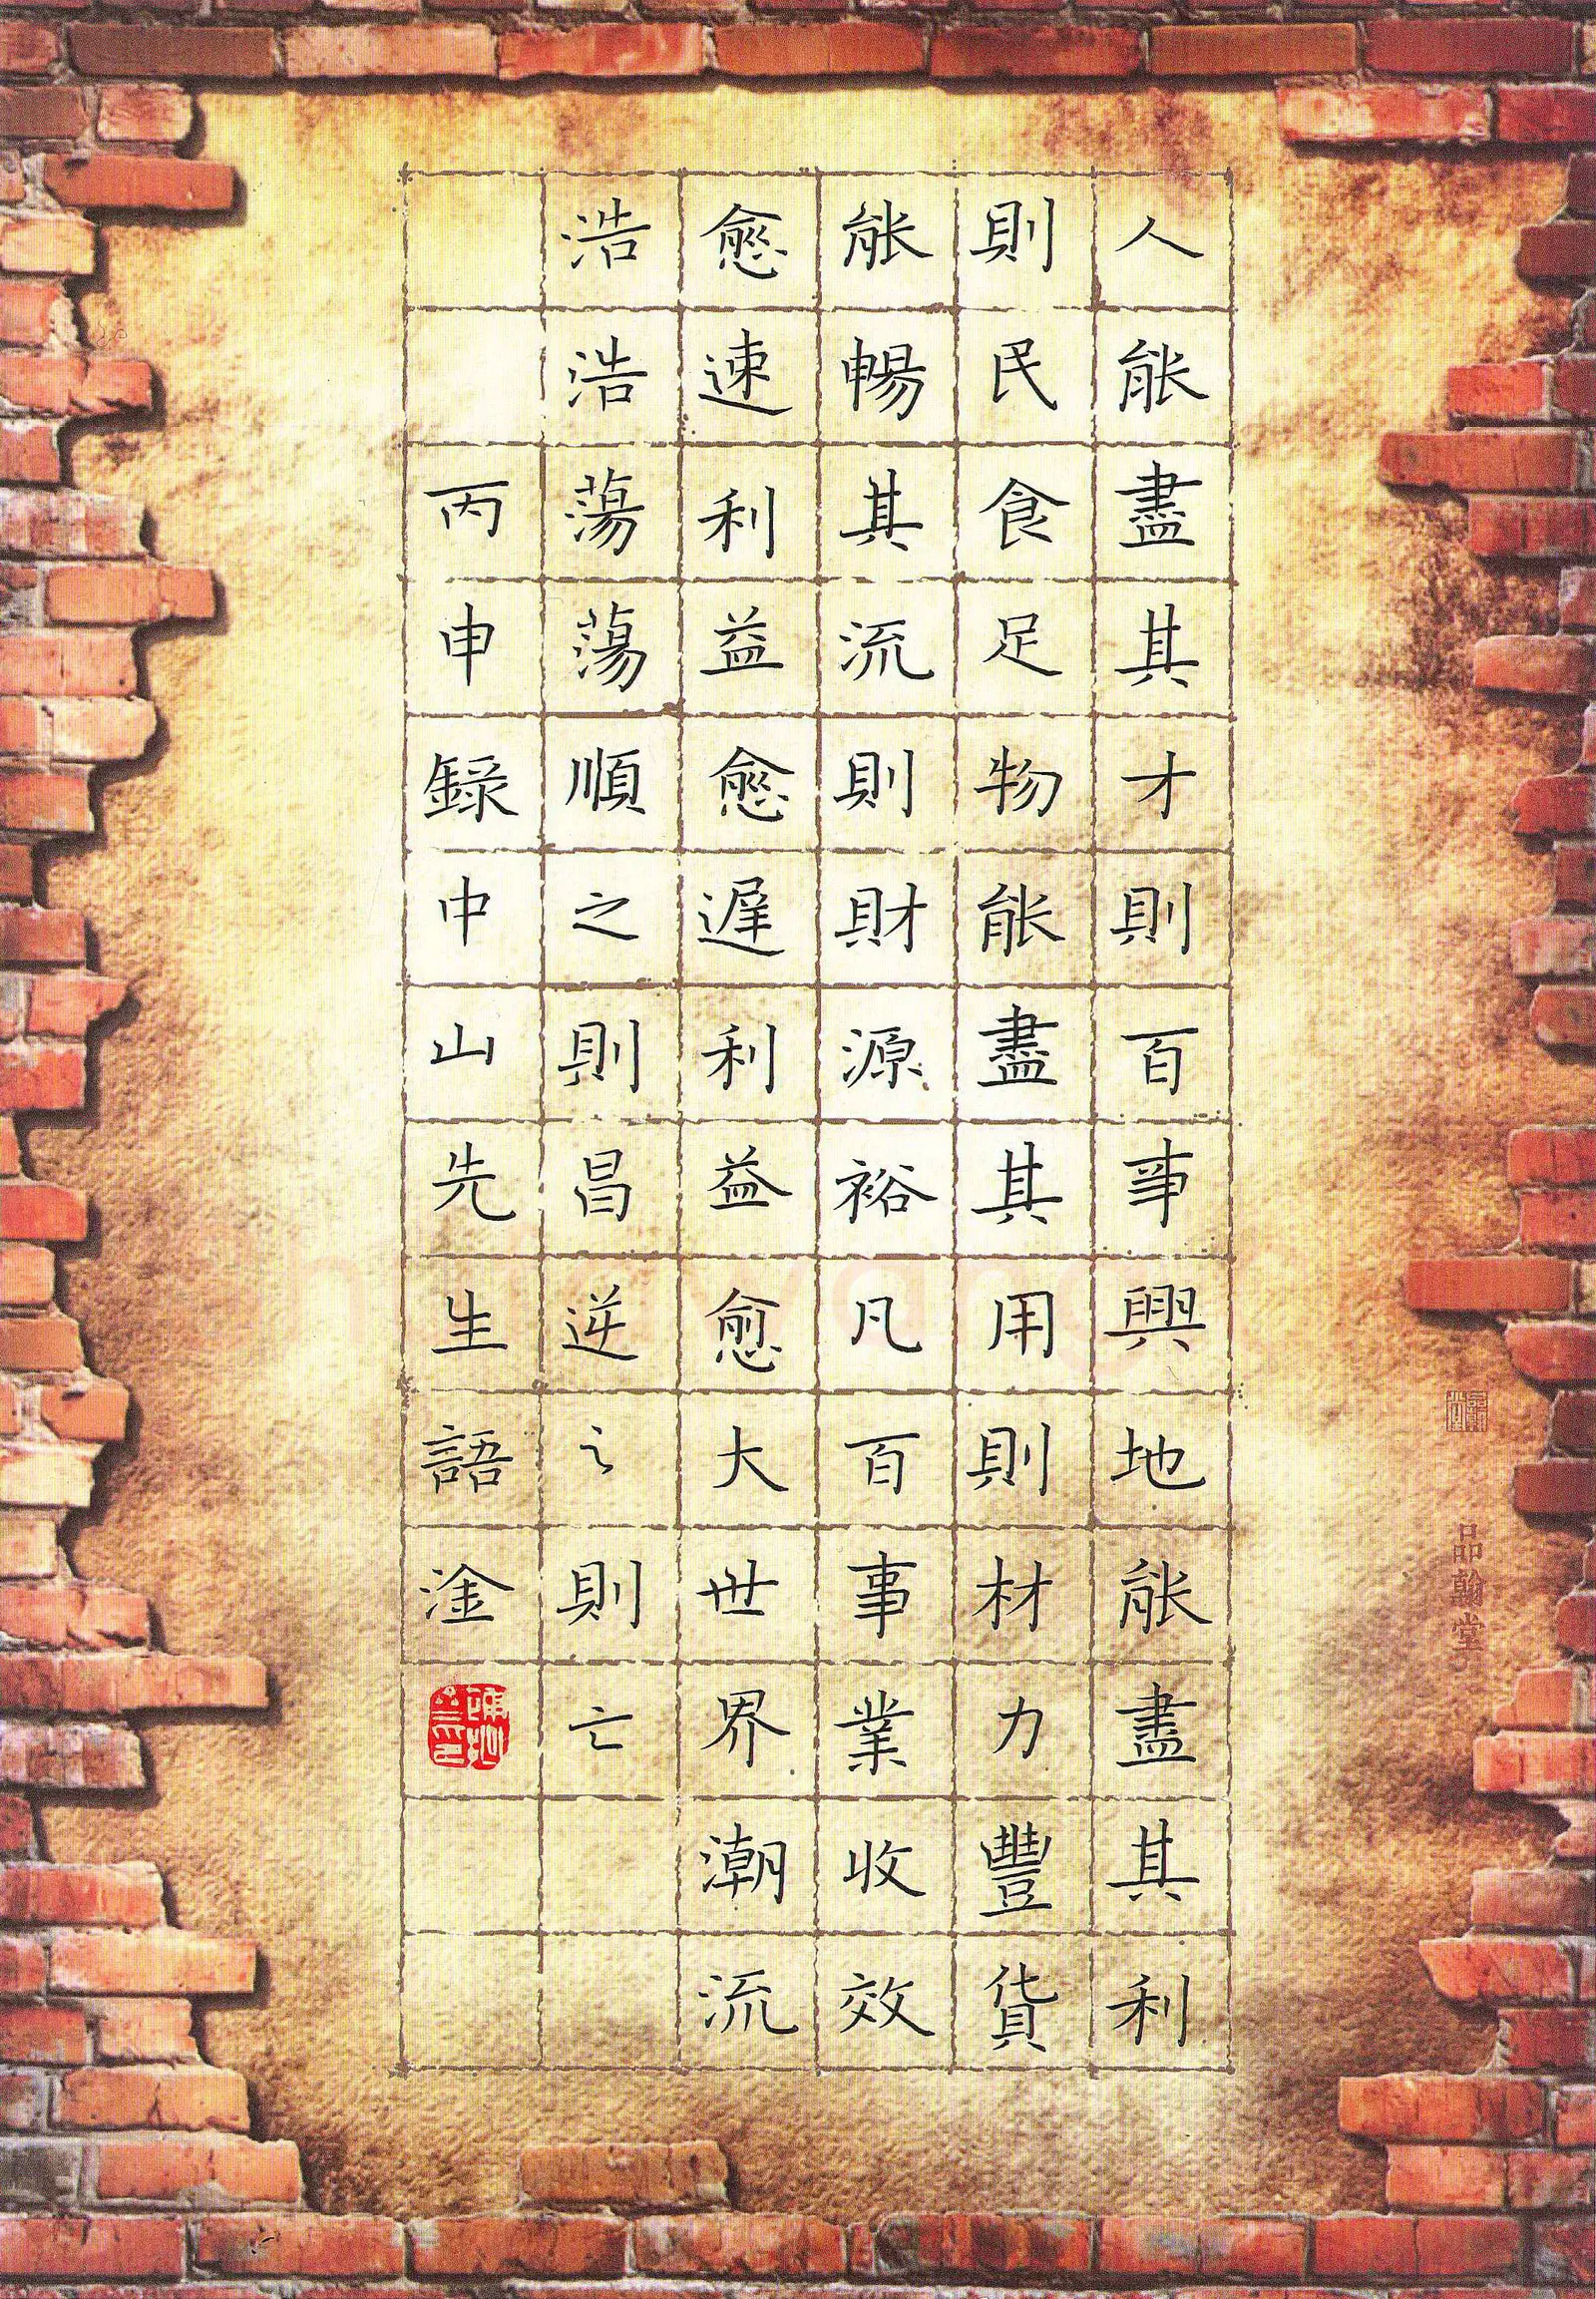 人能盡其才則百事興地能盡其利
則民食足物能盡其用則材力豐貨
能暢其流則財源裕凡百事業收效
愈速利益愈遲利益愈大世界潮流
浩浩蕩蕩順之則昌逆之則亡
丙申錄中山先生語淦
品翰堂